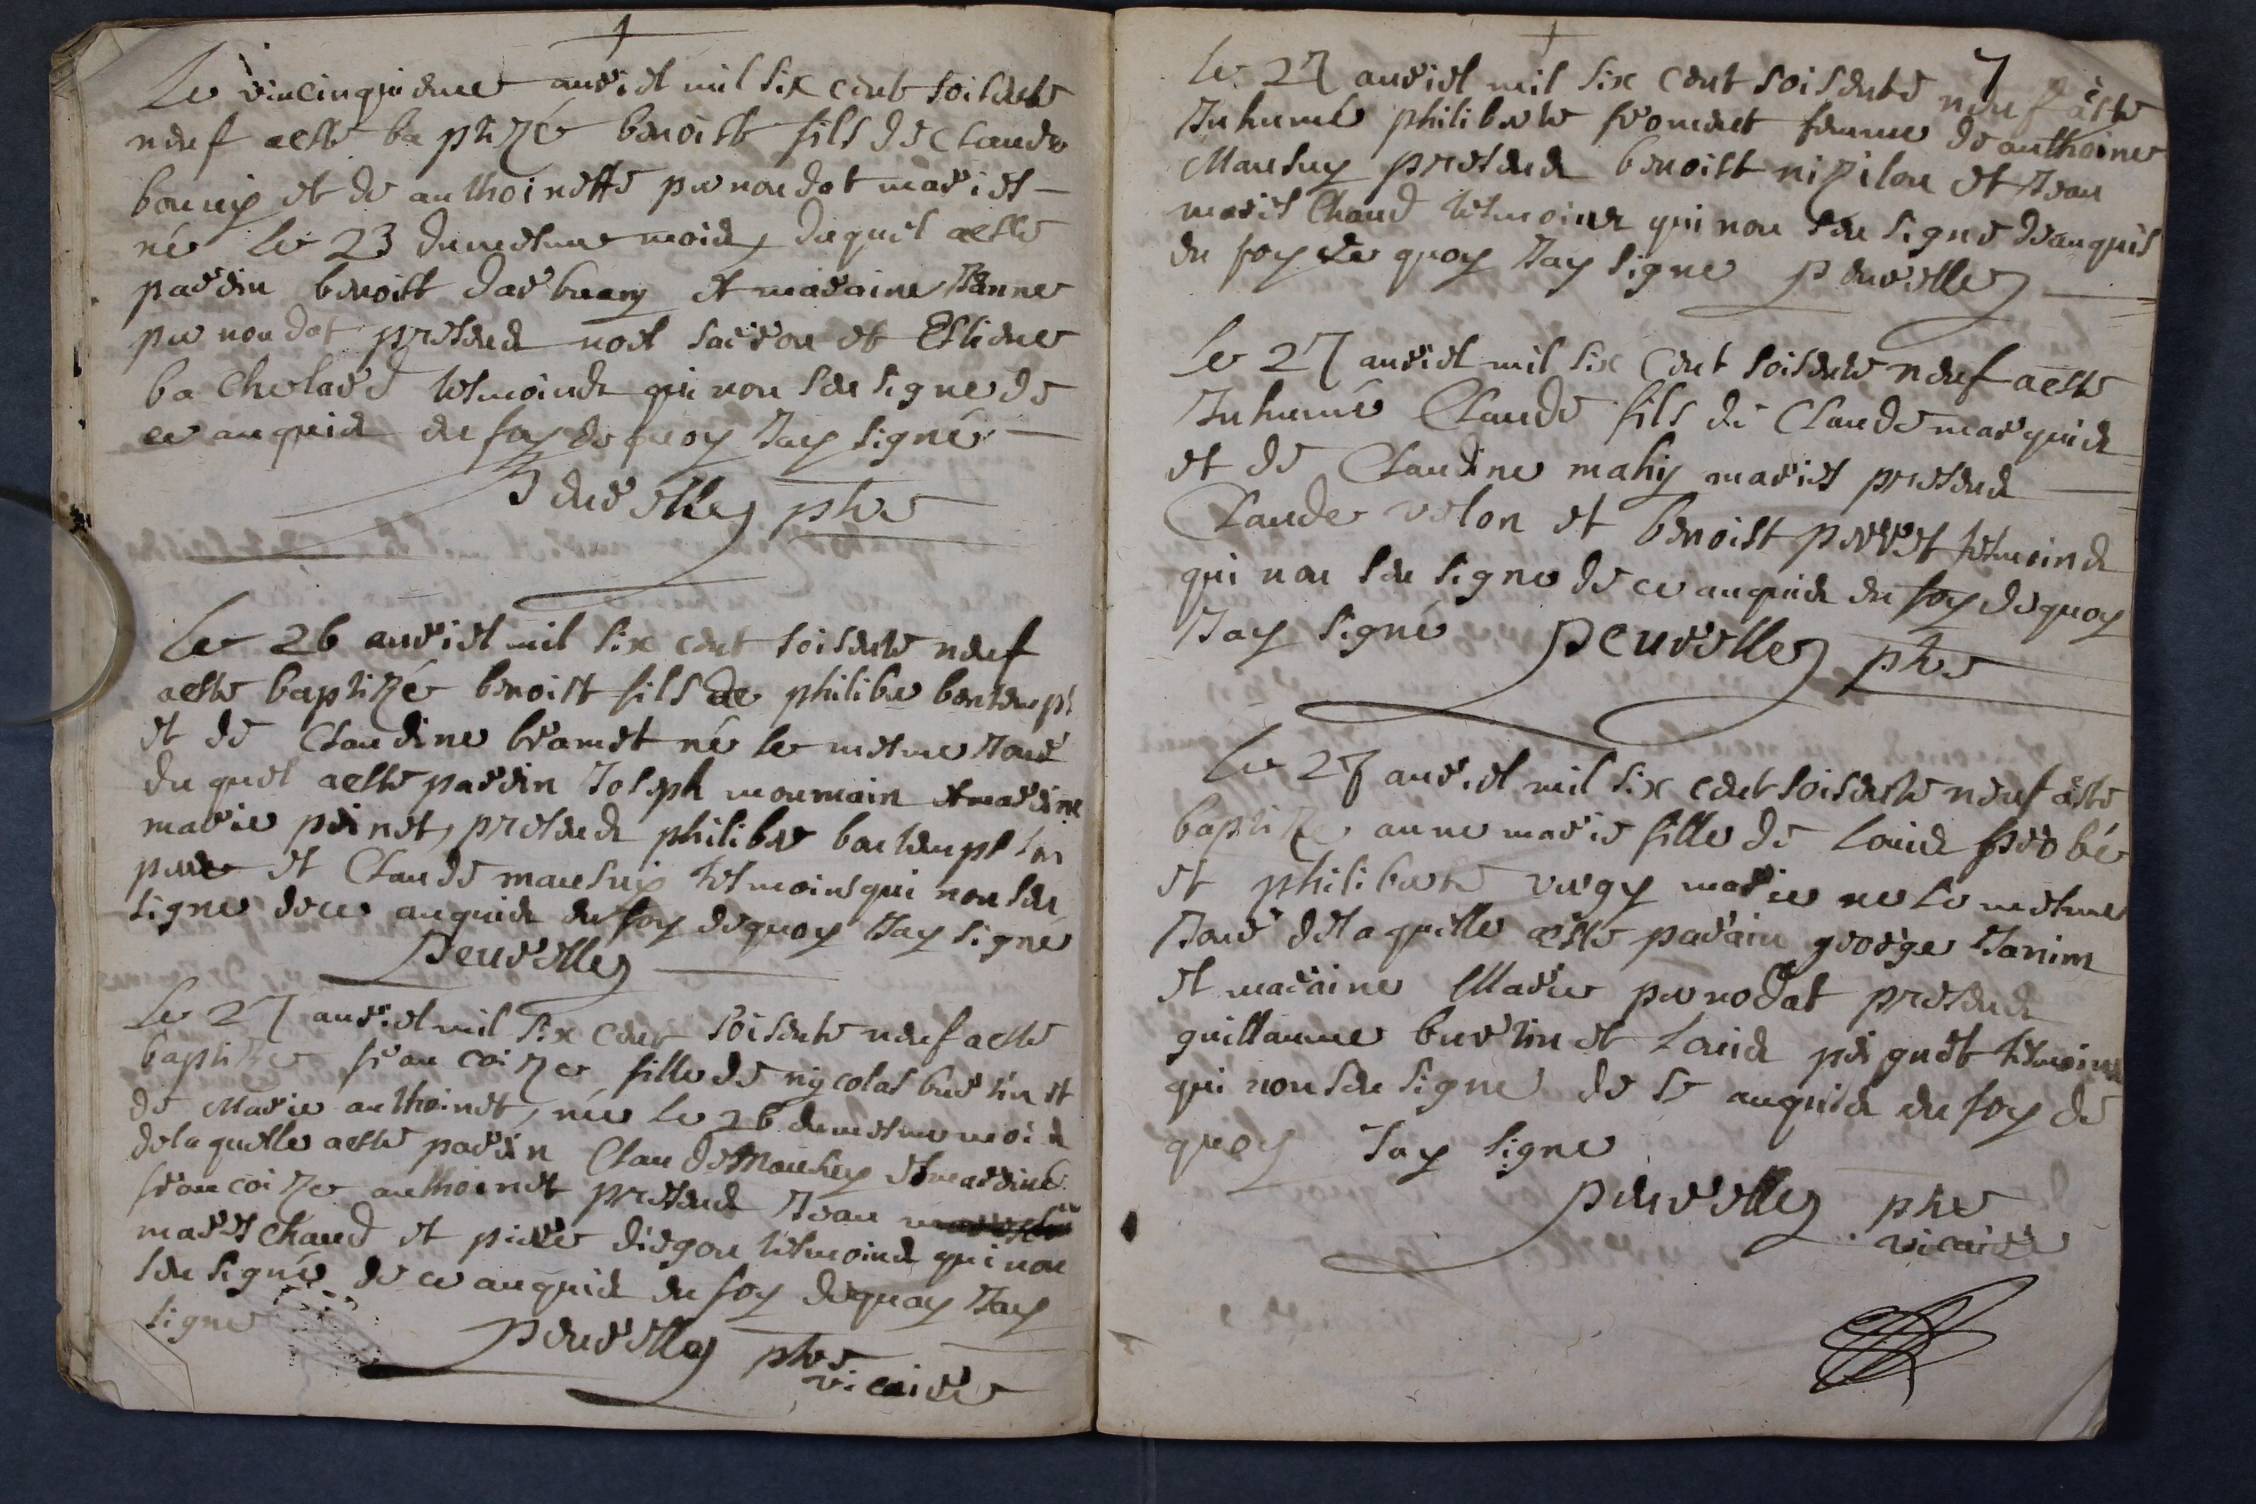 Le vincinquieme avriel mil six cent soisente
neuf aesté baptizé benoist fils de Claude
bouuij et de anthoinette pernoudot mariés
né le 23 du mesme moid duquel aesté
pardin benoist darbueny et maraine Janne
pernoudot presend noel sacron et Estiene
bachelard tesmoind qui non seu signe de
ce anquid en foy de quoy Jay signé
Peurelley ptre
Le 26 avriel mil six cent soisente neuf
aesté baptizé benoist fils de philibe bontempt
et de Claudine bramet né le mesme Jour
du quel aesté pardin Joseph moumain et mardine
marie peinet, presend philibe bontempt son
pere et Claude mausuij tesmoins qui non seu
signe de ce anquid en foy de quoy Jay signé
Peurelley
Le 27 avriel mil six cent soisente neuf aesté
baptize francoize fille de nycolas burtin et
de Marie anthoinet, née le 26 du mesme moid
de la quelle aesté pardin Claude Mausuy et mardine
francoize anthoinet presend Jean
mareschaud et piere diegon tesmoind qui non
seu signé de ce anquid en foy de quoy Jay
signe
Peurelley ptre
vicaire
7
Le 27 avriel mil six cent soisente neuf aesté
Inhumé philiberte froment femme de anthoine
Mausuy presend benoist nizilon et Jean
mareschaud tesmoind qui non seu signe de anquis
en foy de quoy Jay signe Peurelley
Le 27 avriel mil six cent soisente neuf aesté
Inhumé Claude fils de Claude marquid
et de Claudine mahy mariés presend
Claude velon et benoist perret tesmoind
qui non seu signe de ce anquid en foy de quoy
Jay signé Peurelley ptre
Le 27 avriel mil six cent soisente neuf aesté
baptize anne marie fille de Louid probé
et philiberte vergy marie ne le mesme
Jour de la quelle aesté parain george Janin
et maraine Marie pernodat presend
guillaume burtin et Louid peignet tesmoind
qui non seu signe de se anquid en foy de
quoy Jay signe
Peurelley ptre
vicaire